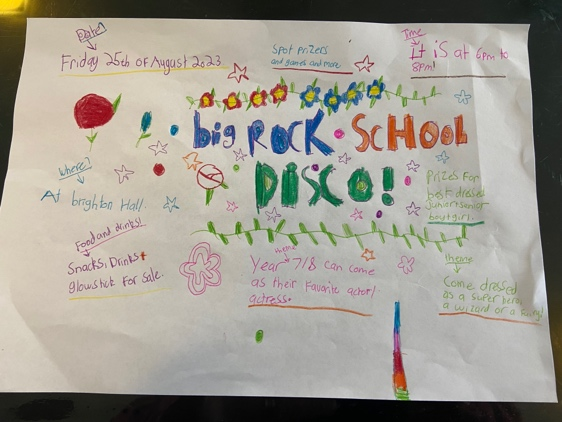 Date?
Friday 25th of August 2023.
Spot prizers
and games and more
Time
it is at 6pm to
8pm!
big ROCK SCHOOL
DISCO!
Where?
At brighton Hall.
Prizes for
best dressed
junior+senior
boy+girl.
Food and drinks!
Snacks, Drinks+
glowstick for sale.
theme
Year 7/8 can come
as their favorite actor/
actress.
theme
Come dressed
as a super hero
a wizard or a